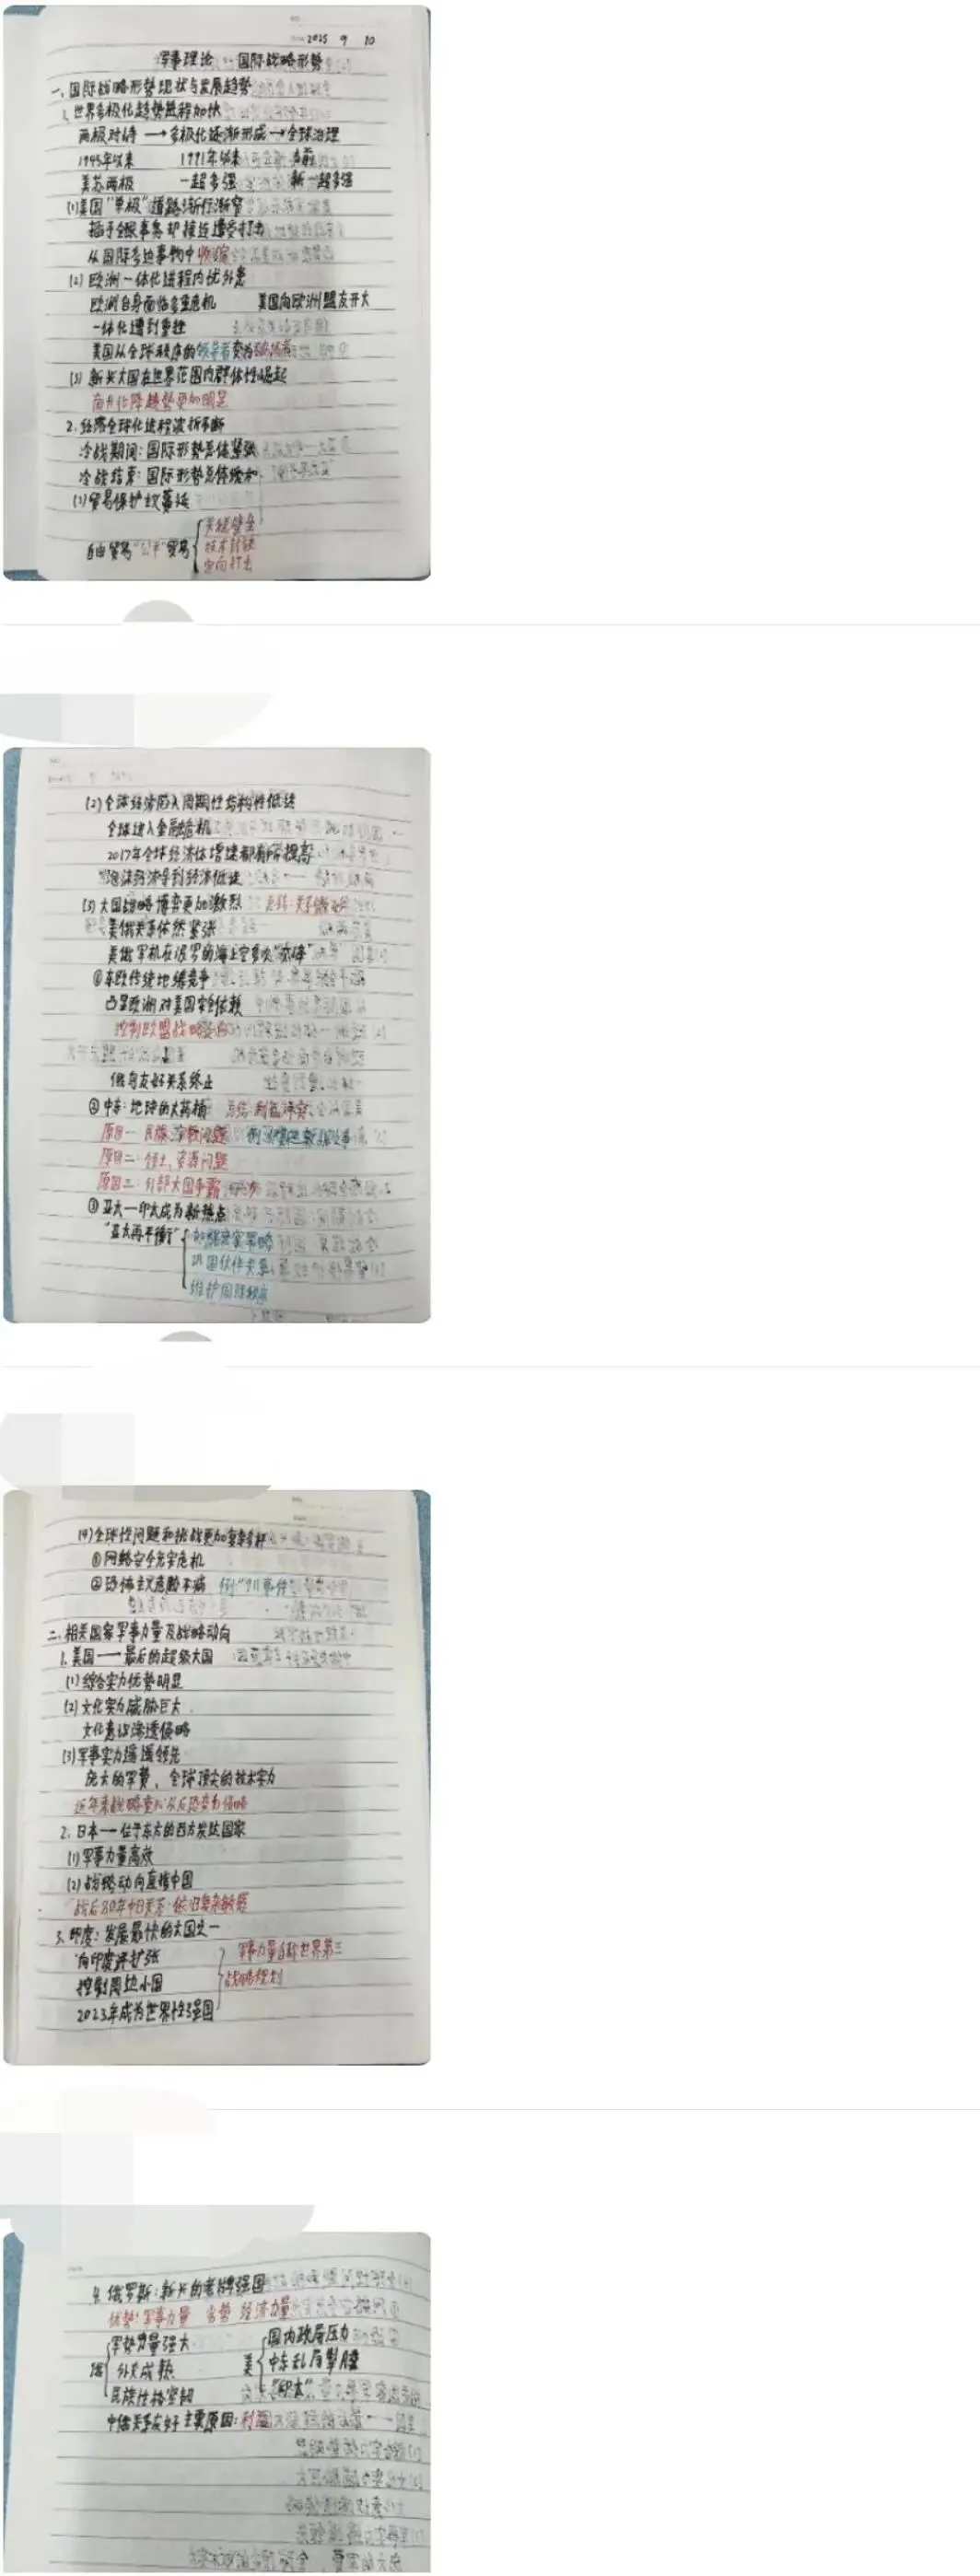 2025 9 10
军事理论 -- 国际战略形势
一、国际战略形势现状与发展趋势
1、世界多极化趋势进程加快
两极对峙 → 多极化逐渐形成 → 全球治理
1945年以来 1991年以来 当前
美苏两极 一超多强 新一超多强
(1)美国"单极"道路渐行渐窄
插手全球事务却接连遭受打击
从国际多边事物中收缩
(2)欧洲一体化进程内忧外患
欧洲自身面临多重危机 美国向欧洲盟友开火
一体化遭到重挫
美国从全球秩序的领导者变为破坏者
(3)新兴大国在世界范围内群体性崛起
南升北降趋势更加明显
2.经济全球化进程波折不断
冷战期间：国际形势总体紧张
冷战结束：国际形势总体缓和
(1)贸易保护主义蔓延
自由贸易"公平"贸易
关税壁垒
技术封锁
定向打击
(2)全球经济陷入周期性结构性低迷
全球进入金融危机
2017年全球经济体增速都有所提高
泡沫经济导致经济低迷
(3)大国战略博弈更加激烈 总结：关系微妙
美俄关系依然紧张
美俄军机在波罗的海上空多次
①东欧传统地缘竞争
凸显欧洲对美国安全依赖
控制欧盟战略
俄乌友好关系终止
②中东：地球的火药桶 总结：利益冲突
原因一：民族、宗教问题
原因二：领土、资源问题
原因三：外部大国争霸
③亚太—印太成为新热点
"亚太再平衡"
巩固伙伴关系
维护国际秩序
(4)全球性问题和挑战更加复杂多样
①网络安全充实危机
②恐怖主义危险不减 例："911事件"
二、相关国家军事力量及战略动向
1. 美国——最后的超级大国
(1)综合实力优势明显
(2)文化实力威胁巨大
文化意识渗透侵略
(3)军事实力遥遥领先
庞大的军费，全球顶尖的技术实力
近年来战略变化：从反恐变为侵略
2. 日本——位于东方的西方发达国家
(1)军事力量高效
(2)战略动向直指中国
战后80年中日关系：依旧复杂敏感
3. 印度：发展最快的大国之一
向印度洋扩张
控制周边小国
2023年成为世界性强国
军事力量自称世界第三
战略规划
4. 俄罗斯：新兴的老牌强国
优势：军事力量 劣势：经济力量
俄
军势力量强大
外交成熟
民族性格坚韧
美
国内政局压力
中东乱局掣肘
"印太"
中俄关系友好主要原因：利益